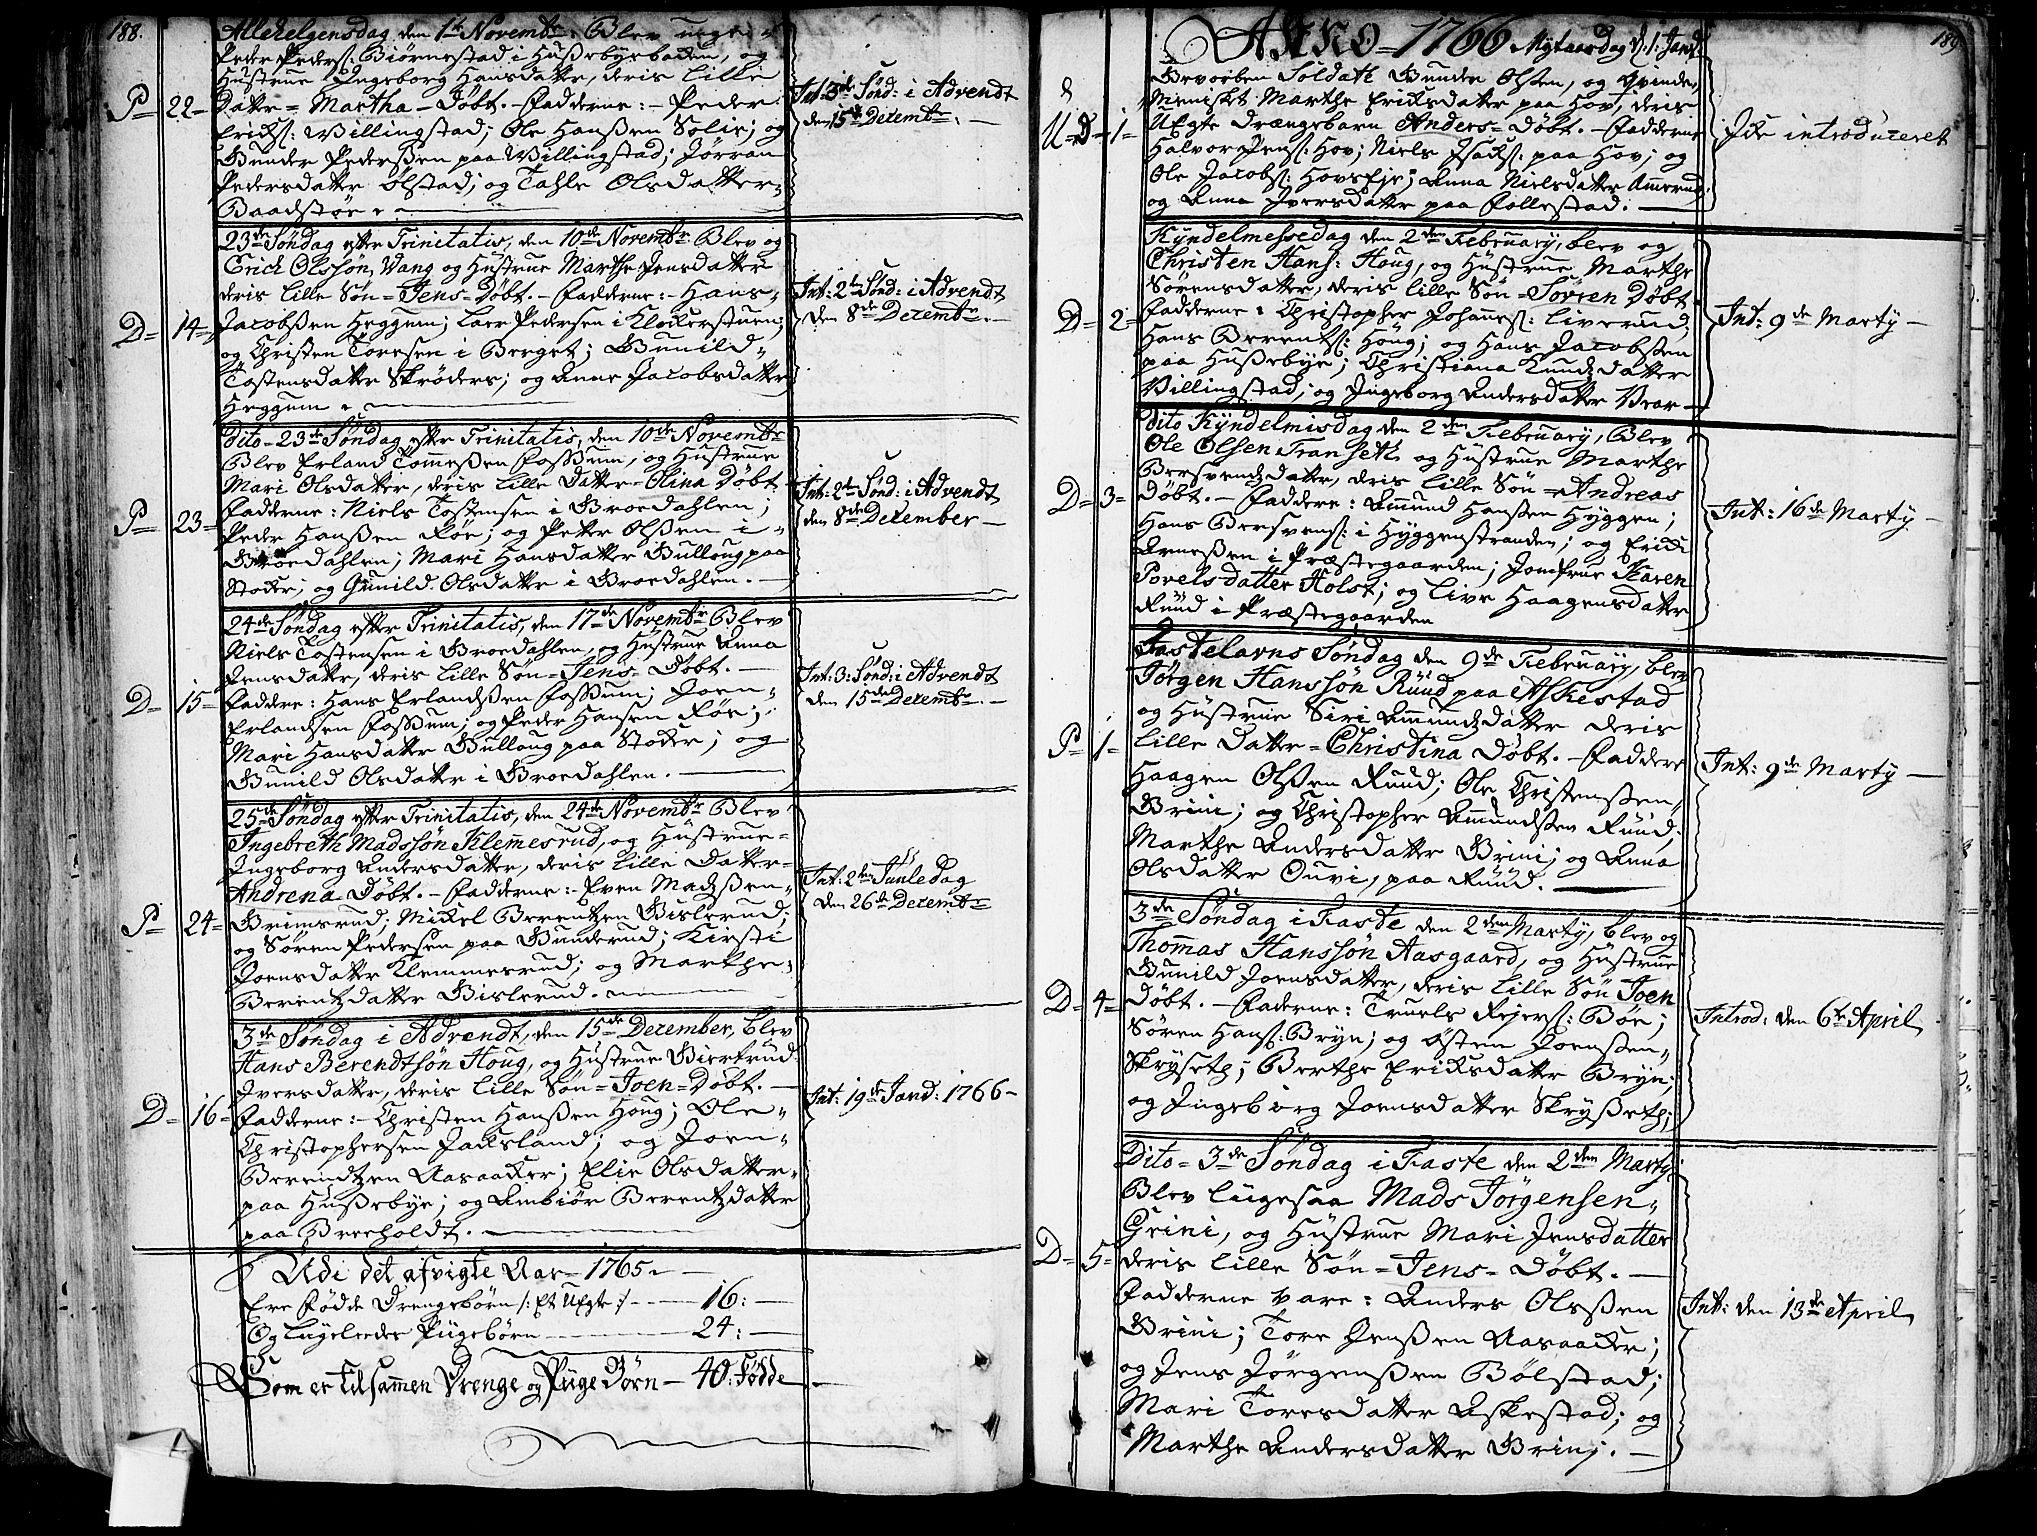 188.
Allehelgensdag den 1te Novembr: Blev
Peder Peders: Biørnestad i Hussebyebaden, og
Hustrue Ingeborg Hansdatter, deris lille
P= 22= Datter = Martha = Døbt. - Fadderne: - Peder
Erichs: Willingstad; Ole Hanssen Solie; og
Gunder Pederssen paa Willingstad; Jørran
Pedersdatter Ølstad; og Tahle Olsdatter
Baadstøe
Int: 3de Sønd: i Advendt
den 15de Decembr:
23de Søndag efter Trinitatis, den 10de Novembr Blev og
Erich Olssøn Vang og Hustrue Marthe Jensdatter
deris lille Søn = Jens = Døbt. - Fadderne: - Hans
D= 14= Jacobssen Heggum; Lars Pedersen i Klokerstuen;
og Christen Toresen i Berget; Gunild
Tostensdatter Skrøders; og Anne Jacobsdatter
Heggum
Int: 2den Sønd: i Advendt
den 8de Decembr.
Dito = 23de Søndag efter Trinitatis, den 10de Novembr
Blev Erland Tommessen Fossum, og Hustrue
Mari Olsdatter, deris lille Datter = Olina Døbt.
P= 23= Fadderne: Niels Tostensen i Broedahlen;
Peder Hanssen Røe; og Petter Olssen i
Broedahlen; Mari Hansdatter Gulloug paa
Stoker; og Gunild Olsdatter i Broedahlen.
Int: 2den Sønd: i Advendt
den 8de December
24de Søndag efter Trinitatis, den 17de Novembr Blev
Niels Tostensen i Broedahlen, og Hustrue Anna
Jensdatter, deris lille Søn = Jens = Døbt.
D= 15= Faddere: Hans Erlandssen Fossum; Joen
Erlandsen Fossum; og Peder Hansen Røe;
Mari Hansdatter Gulloug paa Stoker; og
Gunild Olsdatter i Broedahlen.
Int: 3: Sønd: i Advendt
den 15de Decembr.
25de Søndag efter Trinitatis, den 24de Novembr Blev
Ingebreth Madssøn Klemmesrud, og Hustrue
Ingeborg Andersdatter, deris lille Datter
Andrena Døbt. - Fadderne: - Even Madssen
P= 24= Grimsrud; Mikel Berentzen Bislerud;
og Søren Pedersen paa Gunderud; Kirsti
Joensdatter Klemmesrud; og Marthe
Berentzdatter Bislerud.
Int: 2den Juuledag
den 26de Decembr
3de Søndag i Advendt, den 15de December, blev
Hans Berendtsøn Houg, og Hustrue Giertrud
Iversdatter, deris lille Søn = Joen = Døbt.
D= 16= Fadderne: - Christen Hanssen Houg; Ole
Christophersen Jacksland; og Joen
Berendtzen Aasaaker; Elie Olsdatter
paa Hussebye; og Anbiør Berentzdatter
paa Breeholdt.
Int: 19de Janv: 1766
Udi det afvigte Aar = 1765
Ere Fødde Drengebørn /: Et Uegte :/ 16:
Og Ligeledes Pigebørn 24:
Som er tilsammen Drenge og Pige Børn - 40: Fødde
189
ANNO = 1766 Nytaarsdag d: 1: Janv:
Soldath Gunder Olsen, og Qvinde-
Mennisket Marthe Eriksdatter paa Hov, deris
U=D= 1= Uegte Drengebarn Anders = Døbt. - Fadderne
Halvor Jens: Hov; Niels Isacks: paa Hov; og
Ole Jacobs: Hovseje; Anna Nielsdatter Ammerud;
og Anna Iversdatter paa Follestad.
Icke introduceret
Kyndelmessedag den 2den February, blev og
Christen Hans: Houg, og Hustrue Marthe
Sørensdatter, deris lille Søn = Søvren Døbt.
D= 2= Fadderne: Christopher Johannes: Liverud;
Hans Berents: Houg; og Hans Jacobssen
paa Hussebye; Christiana Knudsdatter
Villingstad; og Ingeborg Andersdatter Vear
Int: 9de Marty
Dito Kyndelmisdag den 2den February, Blev
Ole Olsen Transeth og Hustrue Marthe
Bersvendsdatter, deris lille Søn = Andreas
D= 3= Døbt. - Faddere: Amund Hanssen Hyggen;
Hans Bersvens: i Hyggenstranden; og Erich
Arnessen i Præstegaarden; Jomfrue Karen
Povelsdatter Holst; og Live Haagensdatter
Ruud i Præstegaarden
Int: 16de Marty
Fastelavns Søndag den 9de February, blev
Jørgen Hanssøn Ruud paa Askestad
og Hustrue Siri Amundsdatter deris
P= 1= lille Datter = Christina Døbt. - Faddere
Haagen Olssen Ruud; Ole Christenssen
Grini; og Christopher Amundssen Ruud;
Marthe Andersdatter Grini; og Anna
Olsdatter Ouvi, paa Ruud.
Int: 9de Marty
3de Søndag i Faste den 2den Marty, blev og
Thommas Hanssøn Aasgaard, og Hustrue
Gunild Joensdatter, deris lille Søn Joen
D= 4= Døbt. - Fadderne: Truels Rejers: Bøe;
Søren Hans: Bryn; og Østen Joenssen
Skryseth; Berthe Eriksdatter Bryn;
og Ingeborg Joensdatter Skrysseth;
Introd: den 6te April
Dito = 3de Søndag i Faste den 2den Marty
Blev ligesaa Mads Jørgensen
Grini, og Hustrue Mari Jensdatter
D= 5= deris lille Søn = Jens = Døbt.
Fadderne vare: Anders Olssen
Grini; Tore Jenssen Aasaaker;
og Jens Jørgenssen Bølstad;
Mari Toresdatter Askestad; og
Marthe Andersdatter Grini.
Int: den 13de April